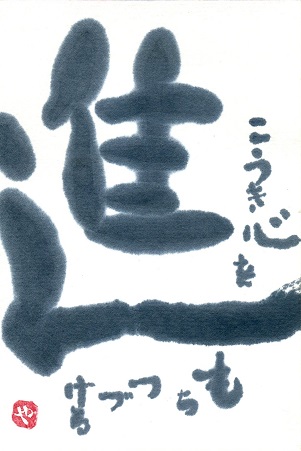 進
こうき心を
もちつづける
や